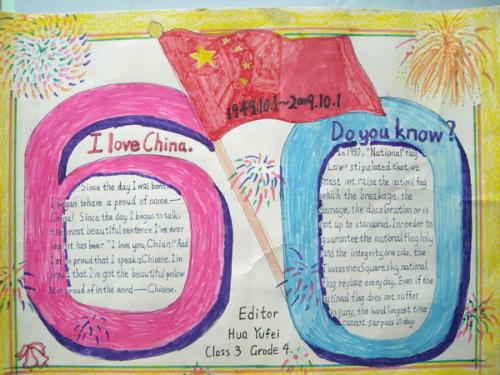 1949.10.1~2009.10.1
I love China.
Do you know?
Since the day I was born
I began to have a proud of name—
China! Since the day I began to talk,
the most beautiful sentence I've ever
has beer "I love you, Chian."And
I'm so proud that I speak Chinese. I'm
proud that I've got the beautiful yellow
skin proud of in the word—Chinese.
In 1990, "National flag
Law" stipulated that, we
must not raise the national flag
which the breakage, the
damage, the discoloration or is
not up to standard. In order to
guarantee the national flag holy
and the integrity one side, the
Tiananmen Square sky national
flag replace everyday. Even if the
national flag does not suffer
injury, the hand longest time
cannot surpass 10 day.
Editor
Hua Yufei
Class 3 Grade 4